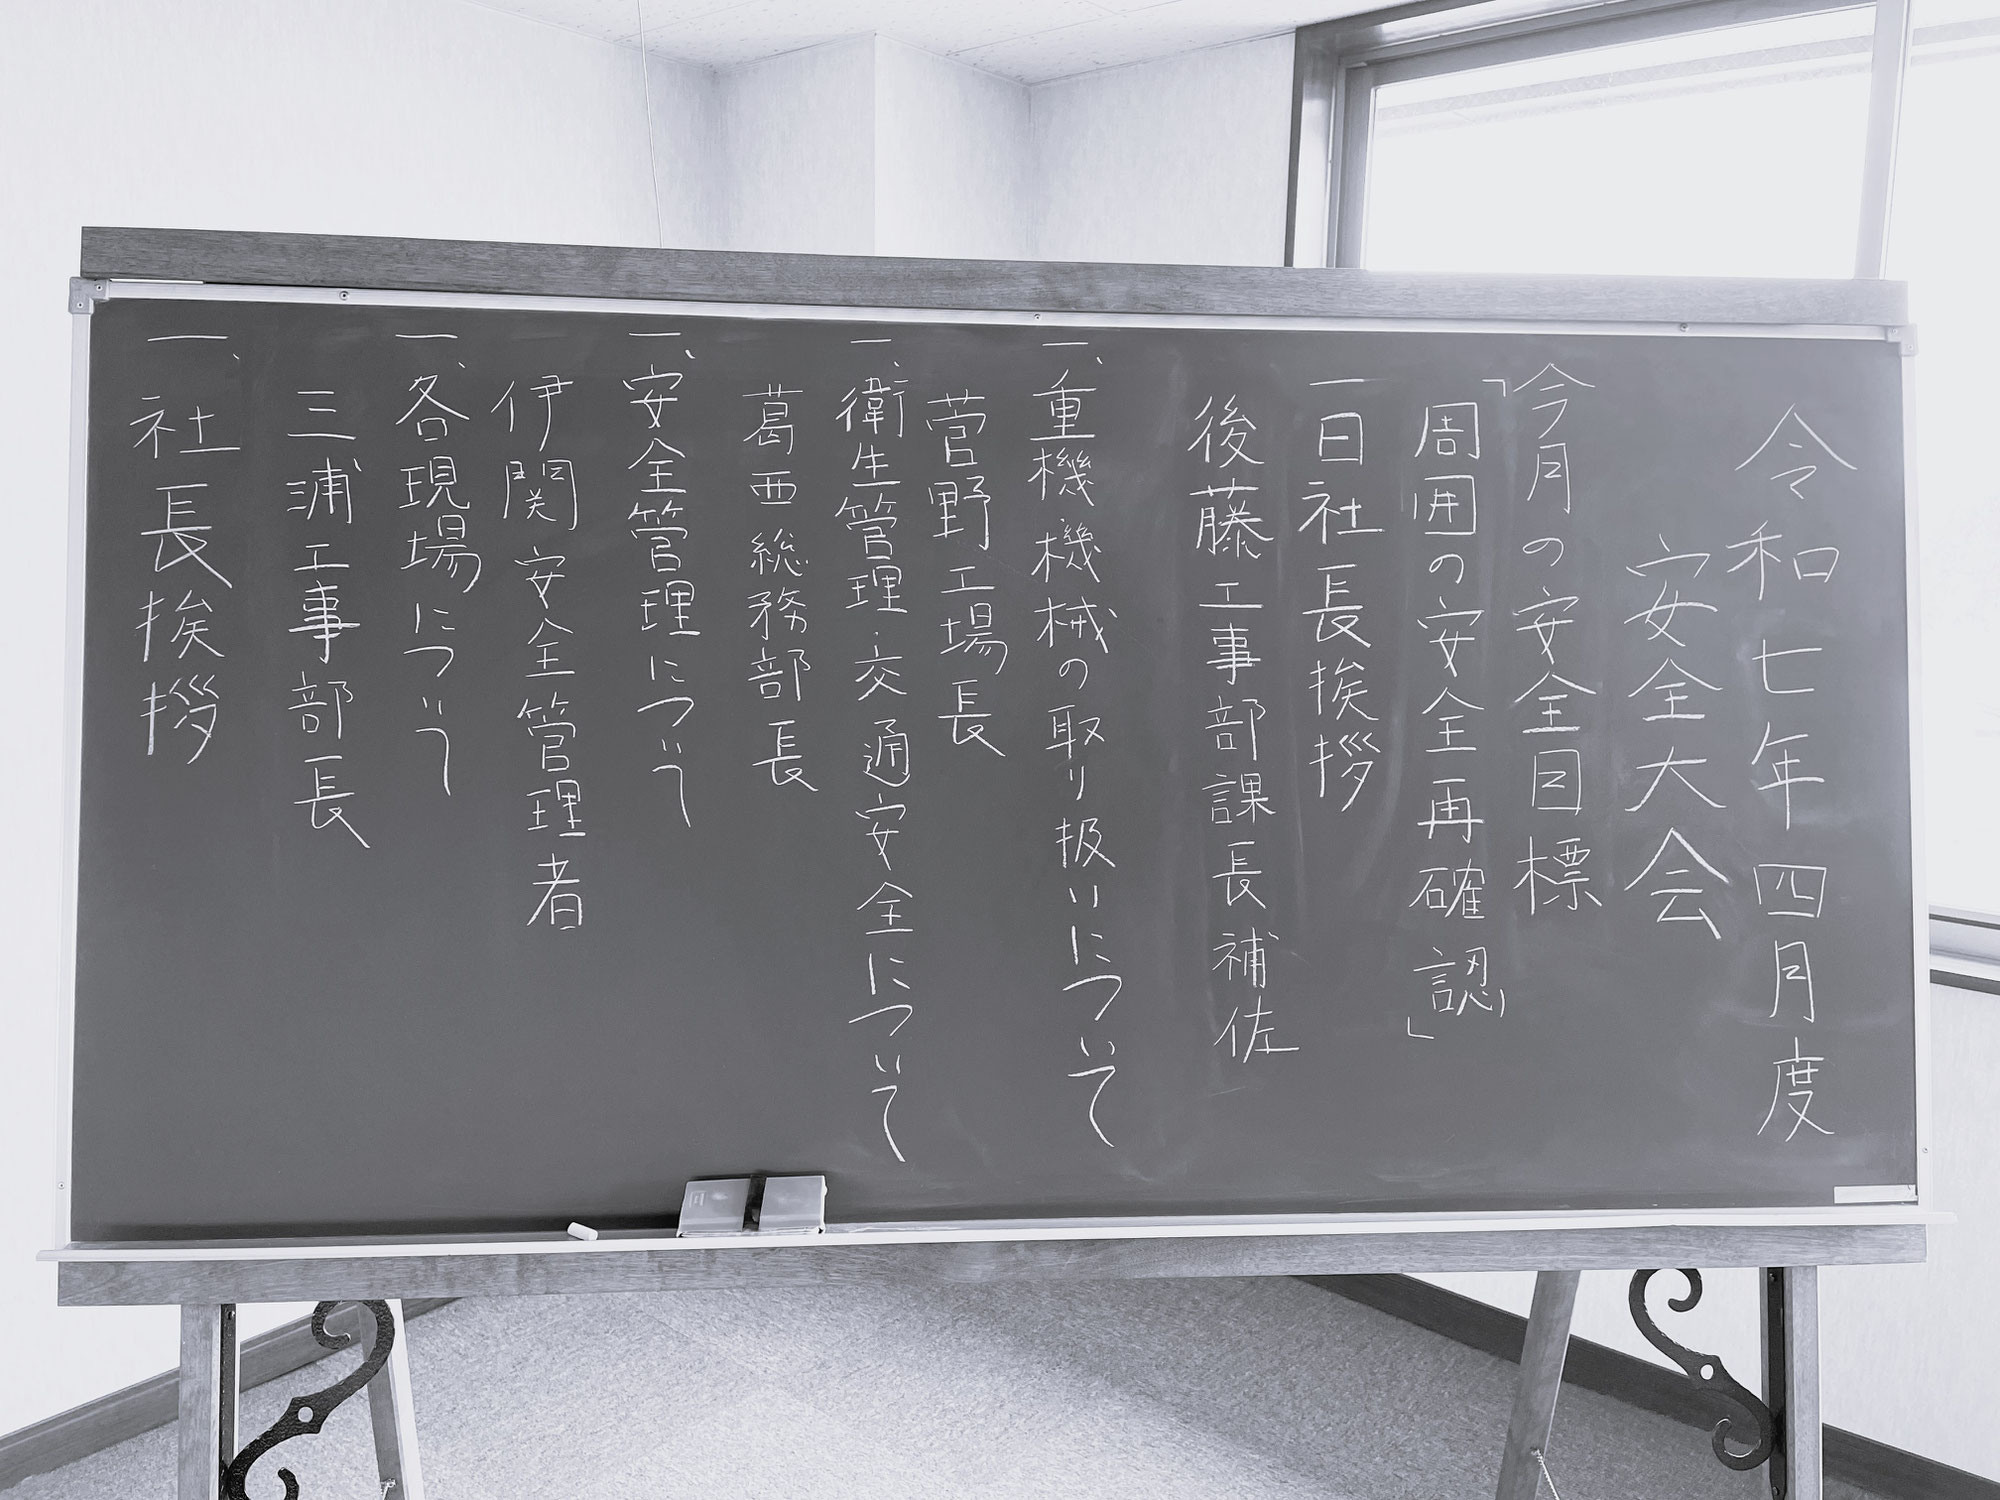 令和七年四月度
安全大会
今月の安全目標
「周囲の安全再確認」
一日社長挨拶
後藤工事部課長補佐
一、重機機械の取り扱いについて
菅野工場長
一、衛生管理・交通安全について
葛西総務部長
一、安全管理について
伊関安全管理者
一、各現場について
三浦工事部長
一、社長挨拶